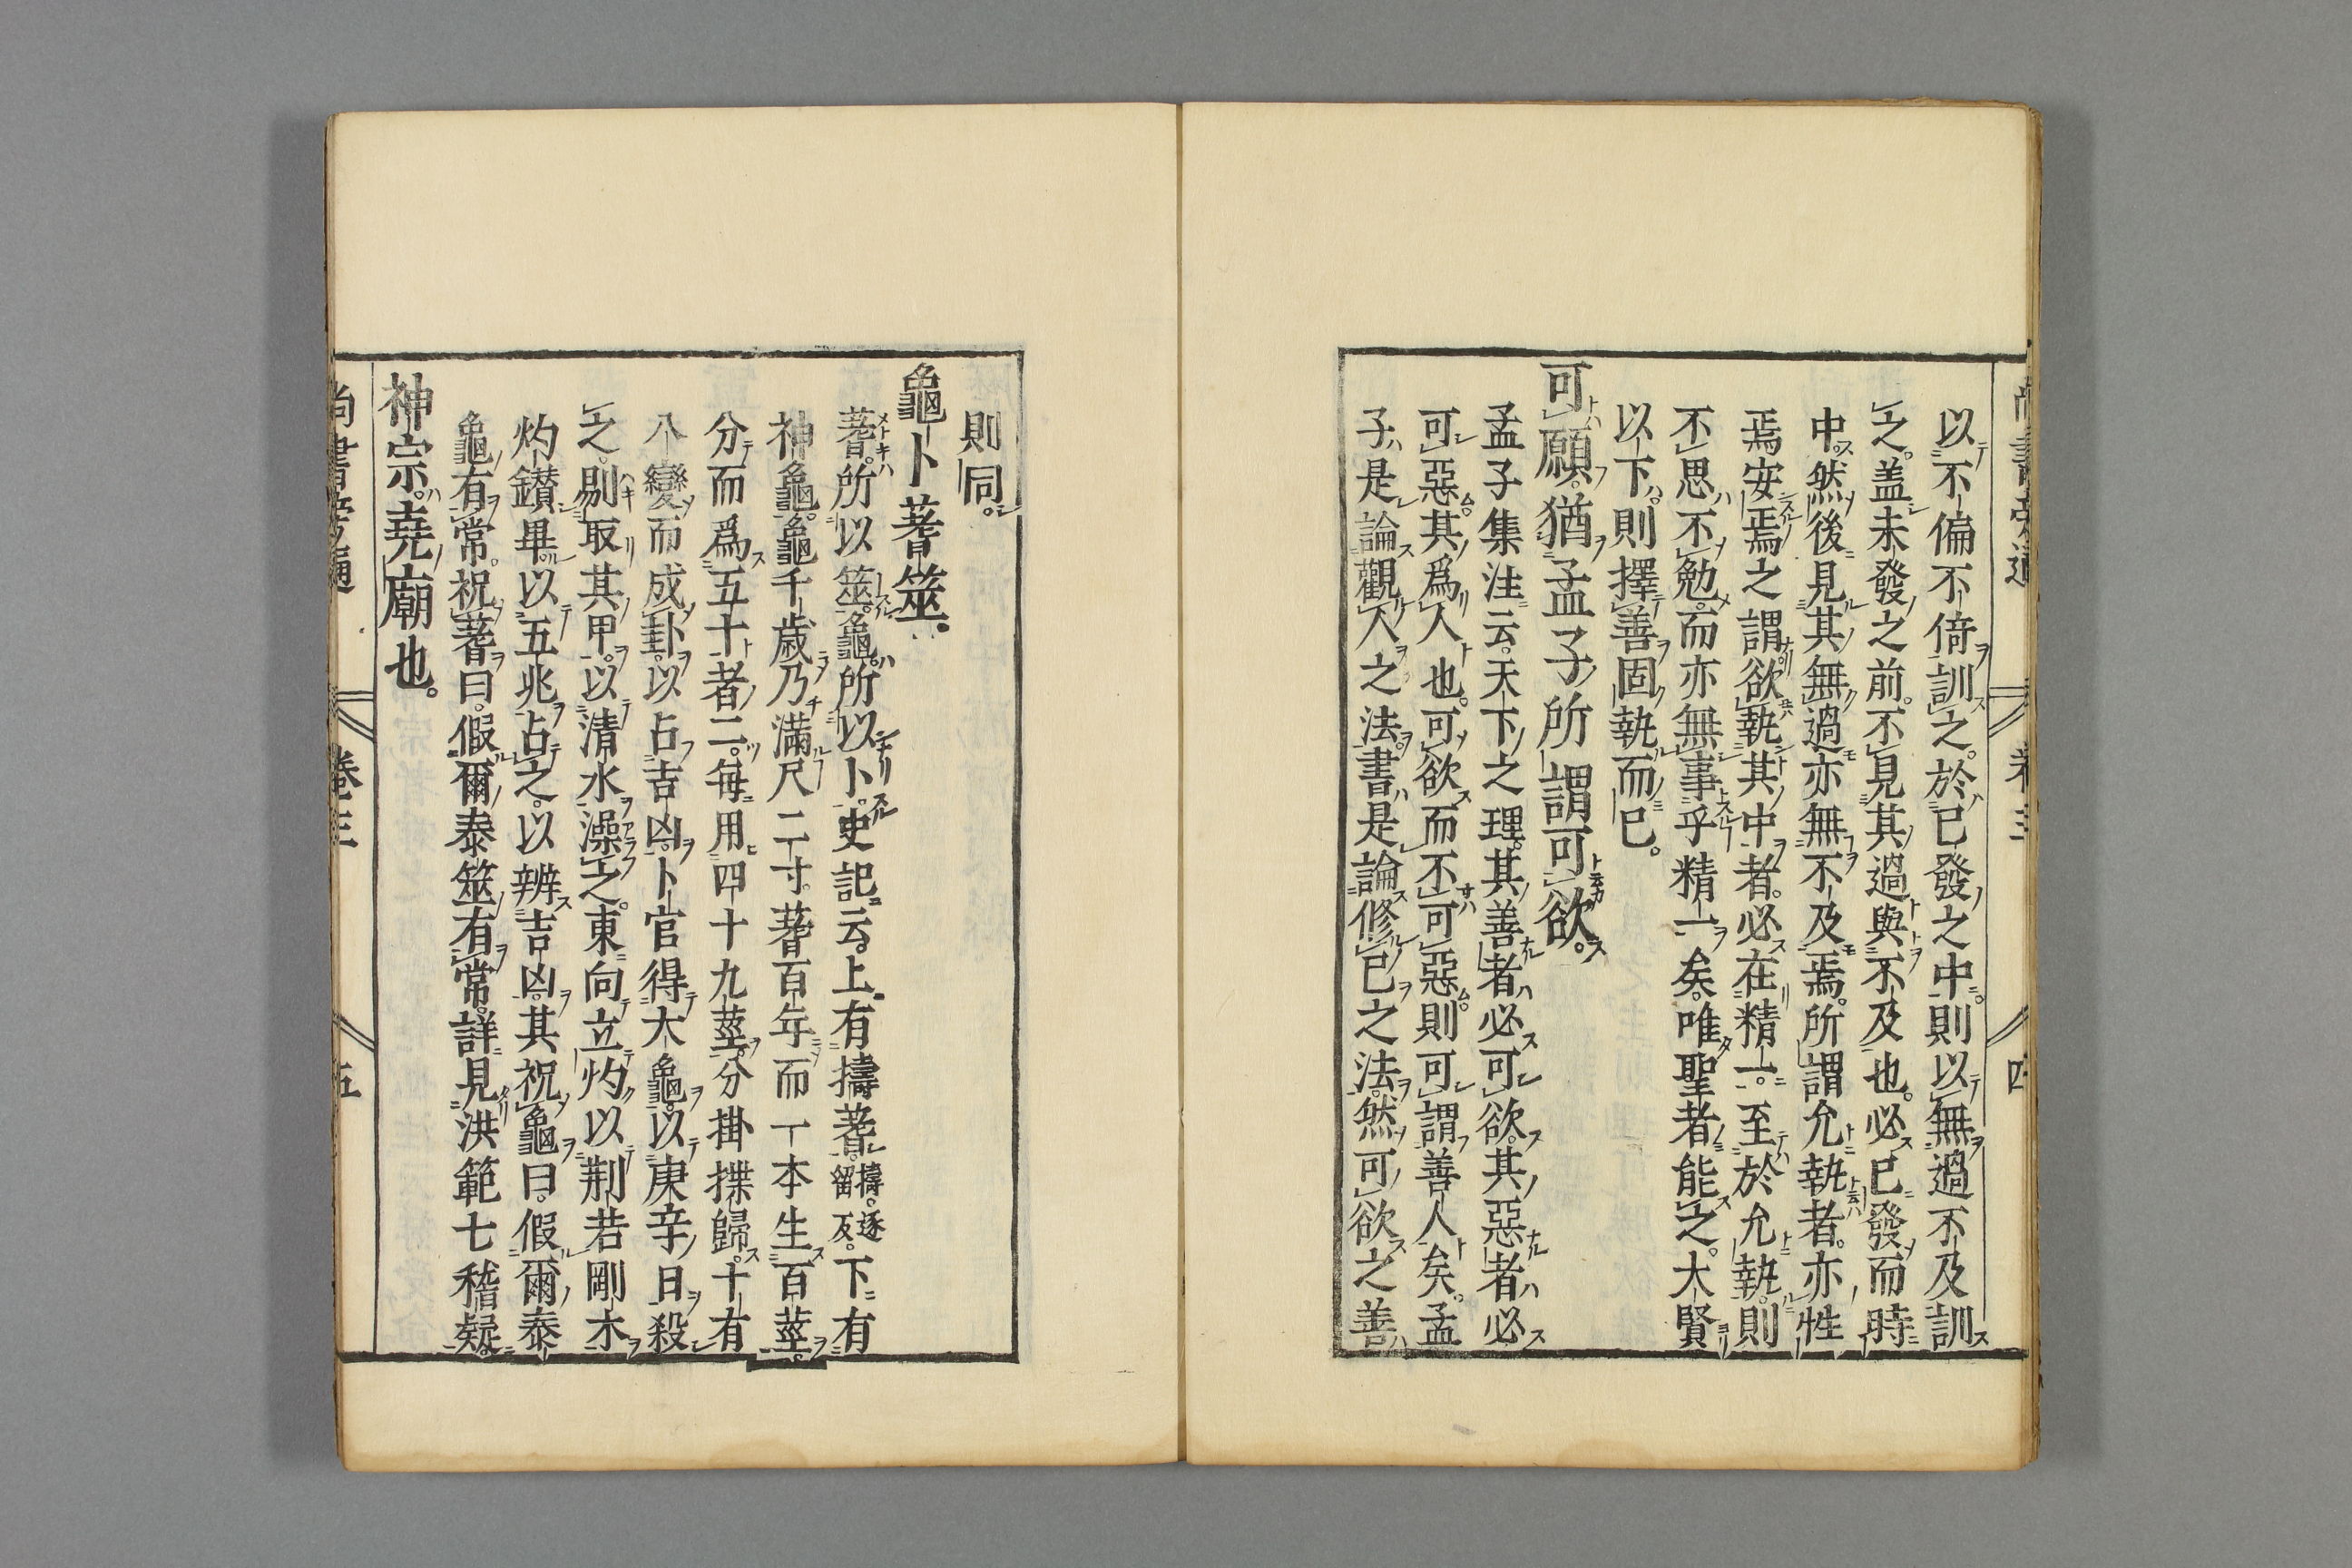 以不偏不倚訓之。於已發之中。則以無過不及訓
之。盖未發之前。不見其過與不及也。必已發而時
中。然後見其無過亦無不及焉。所謂允執者。亦性
焉安焉之謂。欲執其中者。必在精一。至於允執。則
不思不勉。而亦無事乎精一矣。唯聖者能之。大賢
以下。則擇善固執而已。
可願。猶孟子所謂可欲。
孟子集注云。天下之理。其善者必可欲。其惡者必
可惡。其爲人也。可欲而不可惡。則可謂善人矣。孟
子是論觀人之法。書是論修已之法。然可欲之善
則同。
龜卜蓍筮。
蓍。所以筮。龜。所以卜。史記云。上有擣蓍。擣。逐留反。下有
神龜。龜千歲乃滿尺二寸。蓍百年而一本生百莖。
分而爲五十者二。每用四十九莖。分掛揲歸。十有
八變而成卦。以占吉凶。卜官得大龜。以庚辛日殺
之。剔取其甲。以清水澡之。東向立灼以荆若剛木
灼鑚畢。以五兆占之。以辨吉凶。其祝龜曰。假爾泰
龜有常。祝蓍曰。假爾泰筮有常。詳見洪範七稽疑。
神宗。堯廟也。
尚書旁通 卷三 五